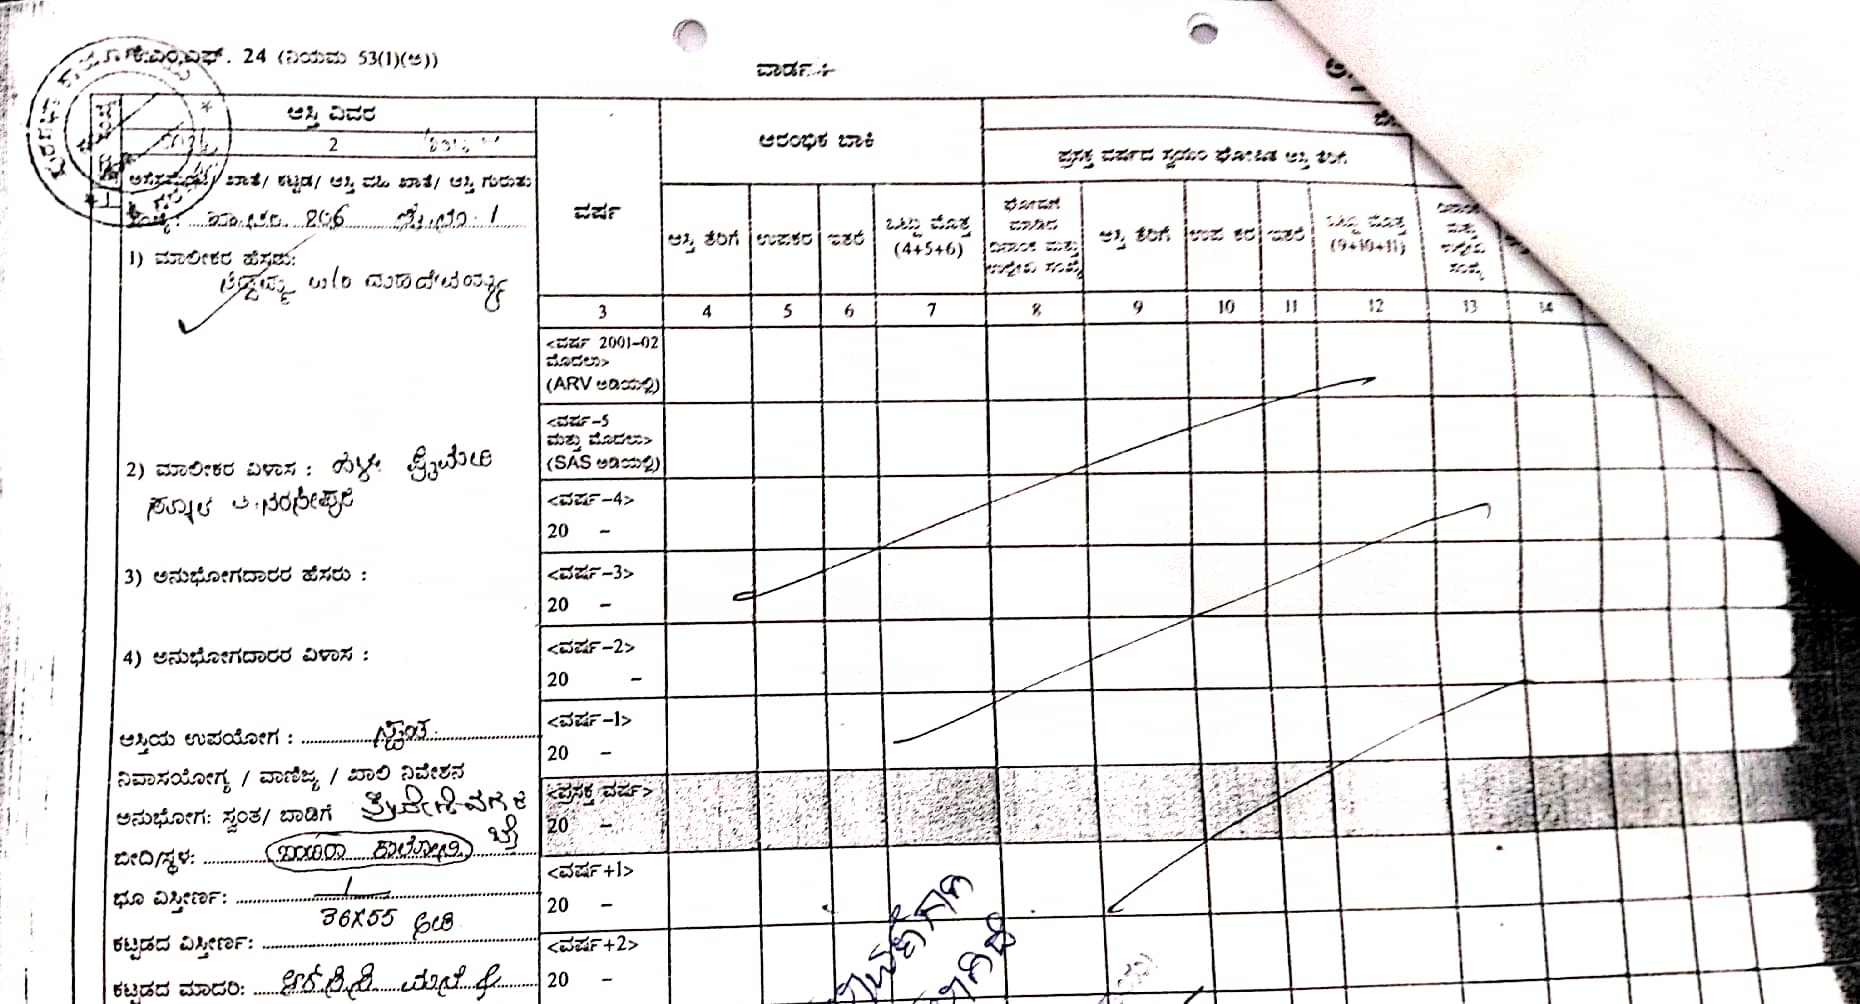 ಕೆ.ಎಂ.ಎಫ್. 24 (ನಿಯಮ 53(1)(ಅ))
ವಾರ್ಡ್
ಆಸ್ತಿ ವಿವರ
2
ಖಾತೆ/ ಕಟ್ಟಡ/ ಆಸ್ತಿ ವಹಿ ಖಾತೆ/ ಆಸ್ತಿ ಗುರುತು
806 1
1) ಮಾಲೀಕರ ಹೆಸರು:
2) ಮಾಲೀಕರ ವಿಳಾಸ : ಹಳೇ ಪ್ರೈಮೇರಿ
ಸ್ಕೂಲ್ ತಿ.ನರಸೀಪುರ
3) ಅನುಭೋಗದಾರರ ಹೆಸರು :
4) ಅನುಭೋಗದಾರರ ವಿಳಾಸ :
ಆಸ್ತಿಯ ಉಪಯೋಗ : ಸ್ವಂತ
ನಿವಾಸಯೋಗ್ಯ / ವಾಣಿಜ್ಯ / ಖಾಲಿ ನಿವೇಶನ
ಅನುಭೋಗ: ಸ್ವಂತ/ ಬಾಡಿಗೆ ತ್ರಿವೇಣಿ ನಗರ
ಬೀದಿ/ಸ್ಥಳ: ಕಾಲೋನಿ
ಭೂ ವಿಸ್ತೀರ್ಣ:
36X55 ಅಡಿ
ಕಟ್ಟಡದ ವಿಸ್ತೀರ್ಣ:
ಕಟ್ಟಡದ ಮಾದರಿ: ಆರ್.ಸಿ.ಸಿ ಮನೆ
ವರ್ಷ
ಆರಂಭಿಕ ಬಾಕಿ
ಪ್ರಸಕ್ತ ವರ್ಷದ ಸ್ವಯಂ ಘೋಷಿತ ಆಸ್ತಿ ತೆರಿಗೆ
ಆಸ್ತಿ ತೆರಿಗೆ
ಉಪಕರ
ಇತರೆ
ಒಟ್ಟು ಮೊತ್ತ
(4+5+6)
ಘೋಷಣೆ
ಮಾಡಿದ
ದಿನಾಂಕ ಮತ್ತು
ಉಲ್ಲೇಖ ಸಂಖ್ಯೆ
ಆಸ್ತಿ ತೆರಿಗೆ
ಉಪ ಕರ
ಇತರೆ
ಒಟ್ಟು ಮೊತ್ತ
(9+10+11)
ದಿನಾಂಕ
ಮತ್ತು
ಉಲ್ಲೇಖ
ಸಂಖ್ಯೆ
3 4 5 6 7 8 9 10 11 12 13 14
<ವರ್ಷ 2001-02
ಮೊದಲು>
(ARV ಅಡಿಯಲ್ಲಿ)
<ವರ್ಷ-5
ಮತ್ತು ಮೊದಲು>
(SAS ಅಡಿಯಲ್ಲಿ)
<ವರ್ಷ-4>
20 -
<ವರ್ಷ-3>
20 -
<ವರ್ಷ-2>
20 -
<ವರ್ಷ-1>
20 -
<ಪ್ರಸಕ್ತ ವರ್ಷ>
20 -
<ವರ್ಷ+1>
20 -
<ವರ್ಷ+2>
20 -